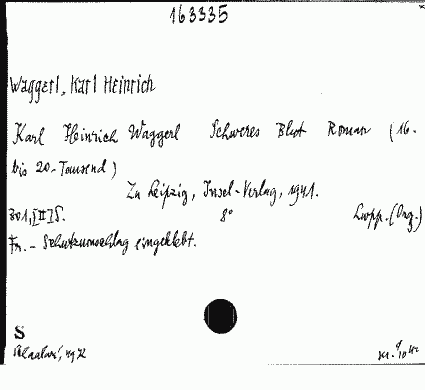 163335
Waggerl, Karl Heinrich
Karl Heinrich Waggerl Schweres Blut Roman (16.
bis 20. Tausend)
Zu Leipzig, Insel-Verlag, 1941.
301, [II] S. 8° Lwpp. (Org.)
Fr. - Schutzumschlag eingeklebt.
S